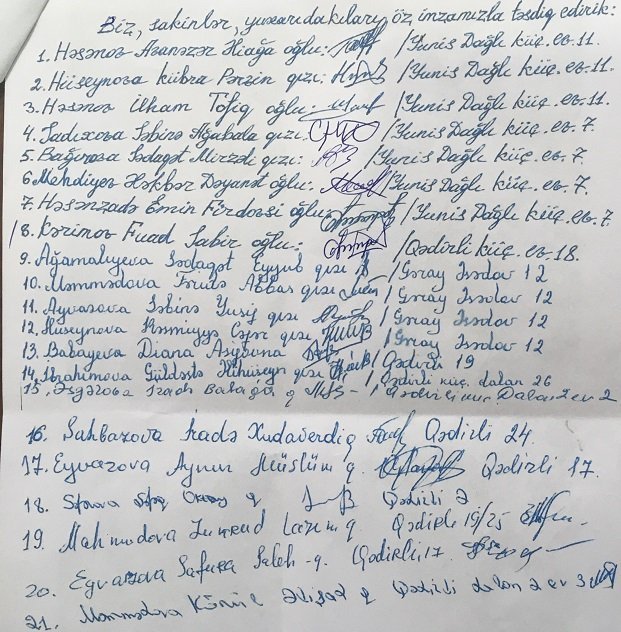 Biz, sakinlər, yuxarıdakıları öz imzamızla təsdiq edirik:
1. Həsənov Əliağa oğlu: /Yunis Dağlı küç. ev. 11.
2. Hüseynova Kübra qızı: /Yunis Dağlı küç. ev. 11.
3. Həsənov İlham Tofiq oğlu: /Yunis Dağlı küç. ev. 11
4. Sadıxova Səbinə Ağabala qızı: /Yunis Dağlı küç. ev. 7.
5. Bağırova Sədaqət qızı: /Yunis Dağlı küç. ev. 7.
6. Mehdiyev Dəyanət oğlu: /Yunis Dağlı küç. ev. 7.
7. Həsənzadə Emin Firdovsi oğlu: /Yunis Dağlı küç. ev. 7
8. Kərimov Fuad Sabir oğlu: /Qədirli küç. ev. 18.
9. Ağamalıyeva Sədaqət Eyyub qızı / Gəray Əsədov 12
10. Məmmədova Abbas qızı / Gəray Əsədov 12
11. Ayvazova Səbinə Yusif qızı / Gəray Əsədov 12
12. Hüseynova qızı / Gəray Əsədov 12
13. Babayeva Diana / Qədirli 19
14. İbrahimova Güldəstə qızı / Qədirli küç. dalan 26
15. Balağa q / Qədirli küç. Dalan 2 ev 2
16. Şahbazova İradə Xudaverdi q Qədirli 24.
17. Eyvazova Aynur Müslüm q. Qədirli 17.
18. q Qədirli 2
19. Mahmudova q Qədirli 19/25
20. Eyvazova Səfurə Saleh q. Qədirli 17.
21. Məmmədova Könül q Qədirli dalan 2 ev 3